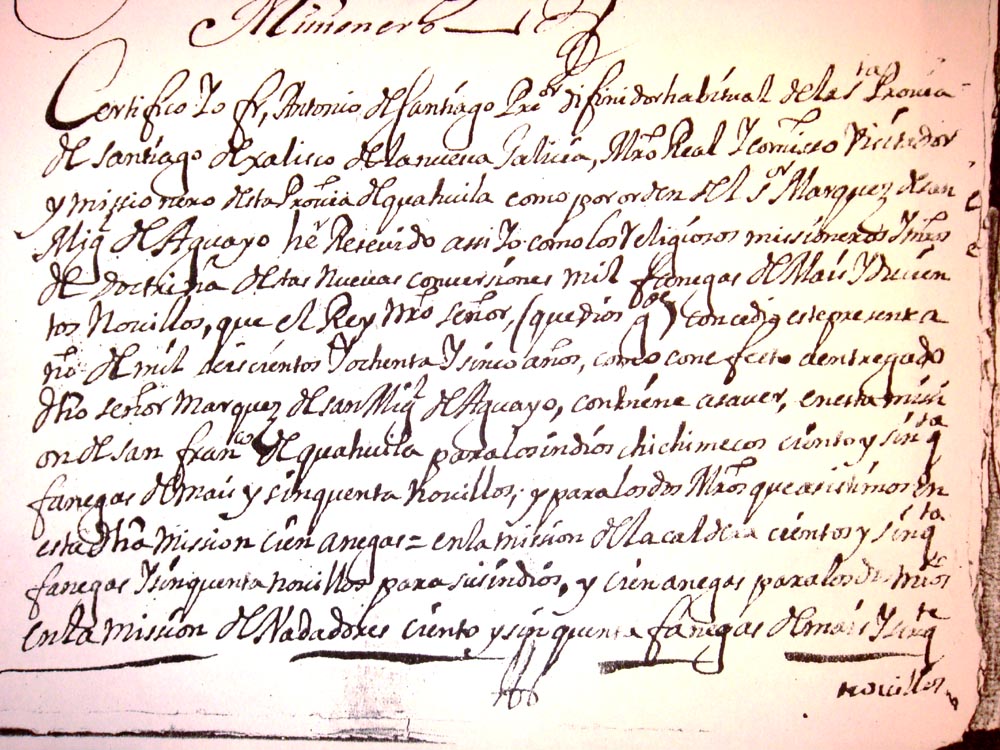 Missionero
Certifico Yo fr, Antonio de Santiago Pre.or difinidor habitual de la s.ta Provia
de Santiago de xalisco de la nueva Galicia, Mro Real Y comisso Vicitador
y missionero desta Provia de quahuila como por orden del s.r Marquez de san
Mig.l de Aguayo he Resevido assi Yo como los Religiosos missioneros Y mros
de Doctrina destas Nuevas conversiones mil fanegas de Mais Y Ducien
tos Novillos, que el Rey Nro señor, (que dios g.de) concedio este presente a
ño de mil seiscientos Y ochenta Y sinco años, como con efecto a entregado
dho señor Marquez de san Mig.l de Aguayo, contiene a saver, en esta missi
on de san fran.co de quahuila para los indios chichimecos ciento y sinq.ta
fanegas de mais y sinquenta novillos; y para los dos Mros que asistimos en
esta dha mission cien anegas = en la mission de la caldera cientos y sinq.ta
fanegas Y sinquenta novillos para sus indios, y cien anegas para los dos mros
en la mission de Nadadores ciento y sinquenta fanegas de mais Y sinq.te
novillos